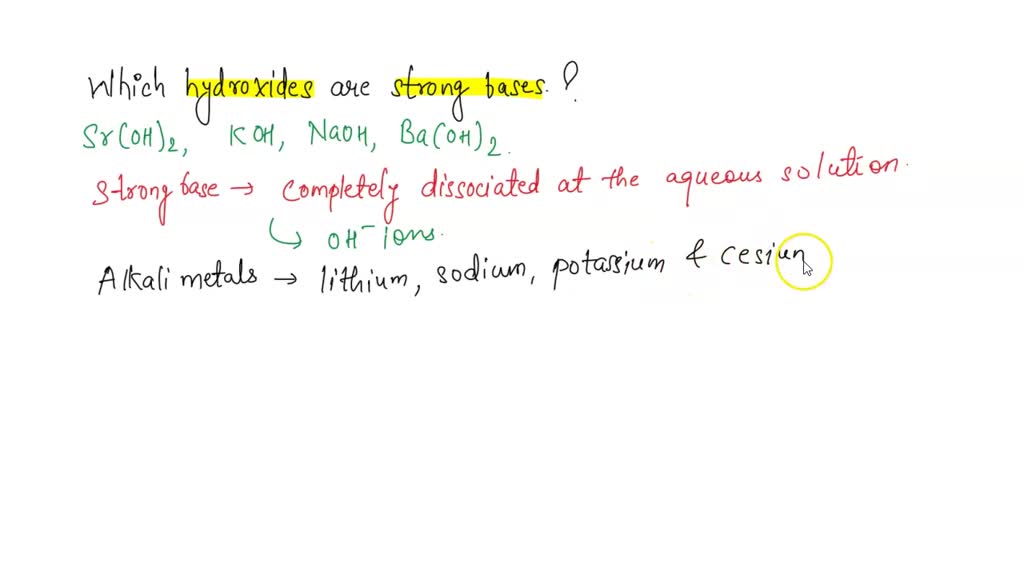 Which hydroxides are strong bases. ?
Sr(OH)2, KOH, NaOH, Ba(OH)2.
Strong base → Completely dissociated at the aqueous solution.
↳ OH⁻ ions.
Alkali metals → lithium, sodium, potassium & cesium